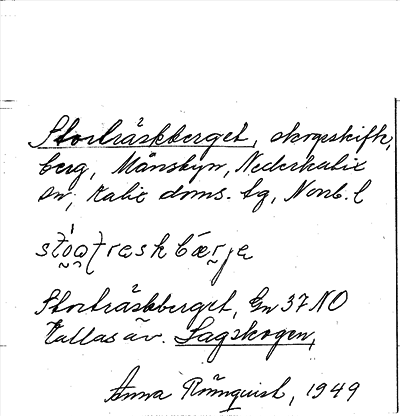 Storträskberget, skogsskifte,
berg, Månsbyn, Nederkalix
sn, Kalix doms. tg, Norrb. l
stoatraskbærja
Storträskberget, Gn 37 NO
Kallas äv. Lagskogen,
Anna Rönnquist, 1949